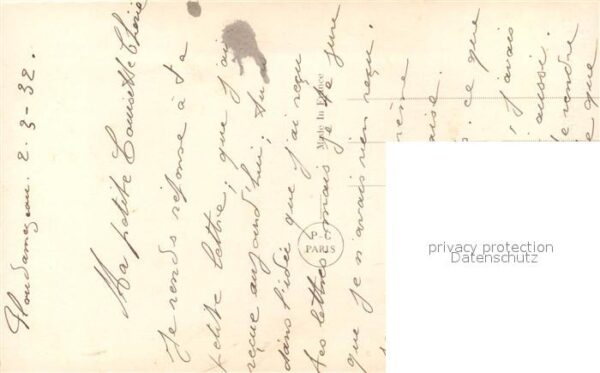 Ploudamezeau. 2-3-32.
Ma petite Louisette Chérie
Je rends réponse à ta
petite lettre, que j'ai
reçue aujourd'hui; tu
dans l'idée que j'ai reçu
tes lettres mais je te jure
que je n'avais rien reçu.
ce que
j'avais
aussi.
te rendre
que
Made In France
P. C.
PARIS
privacy protection
Datenschutz